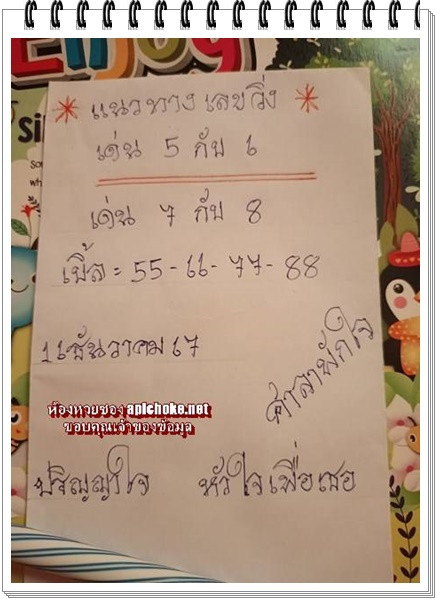 Enjoy
Si
So
wh
* แนวทางเลขวิ่ง *
เด่น 5 กับ 6
เด่น 7 กับ 8
เบิ้ล = 55-66-77-88
1 ธันวาคม 67
ศาลาพักใจ
ห้องหวยซอง apichoke.net
ขอบคุณเจ้าของข้อมูล
ปริญญาใจ หัวใจเพื่อเธอ